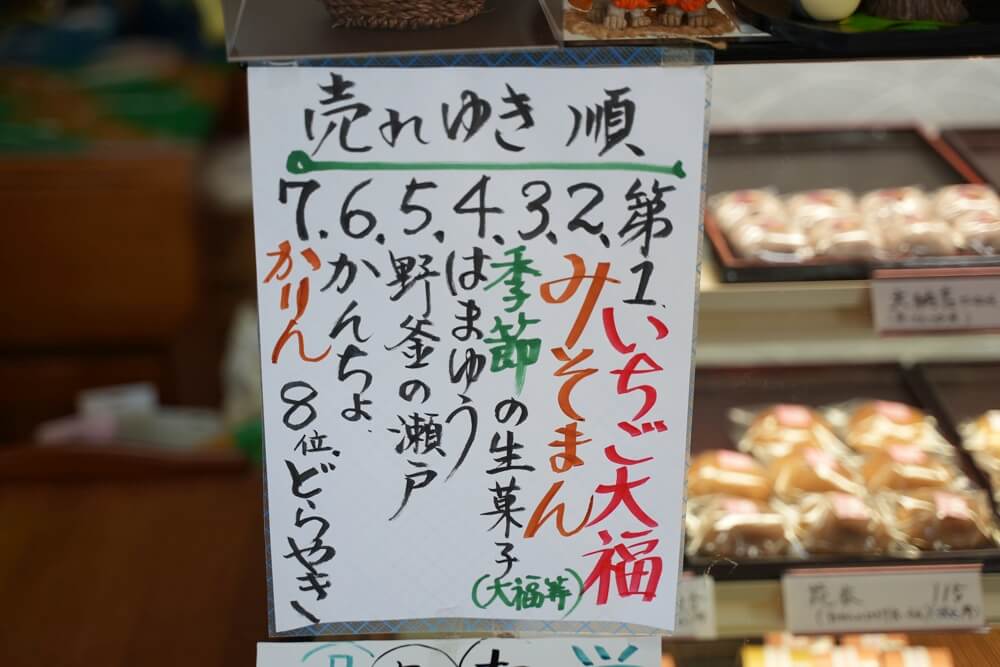 売れゆき順
第1.いちご大福
2、みそまん
3、季節の生菓子
(大福等)
4、はまゆう
5、野釜の瀬戸
6、かんちょ
7、かりん
8位、どらやき
115